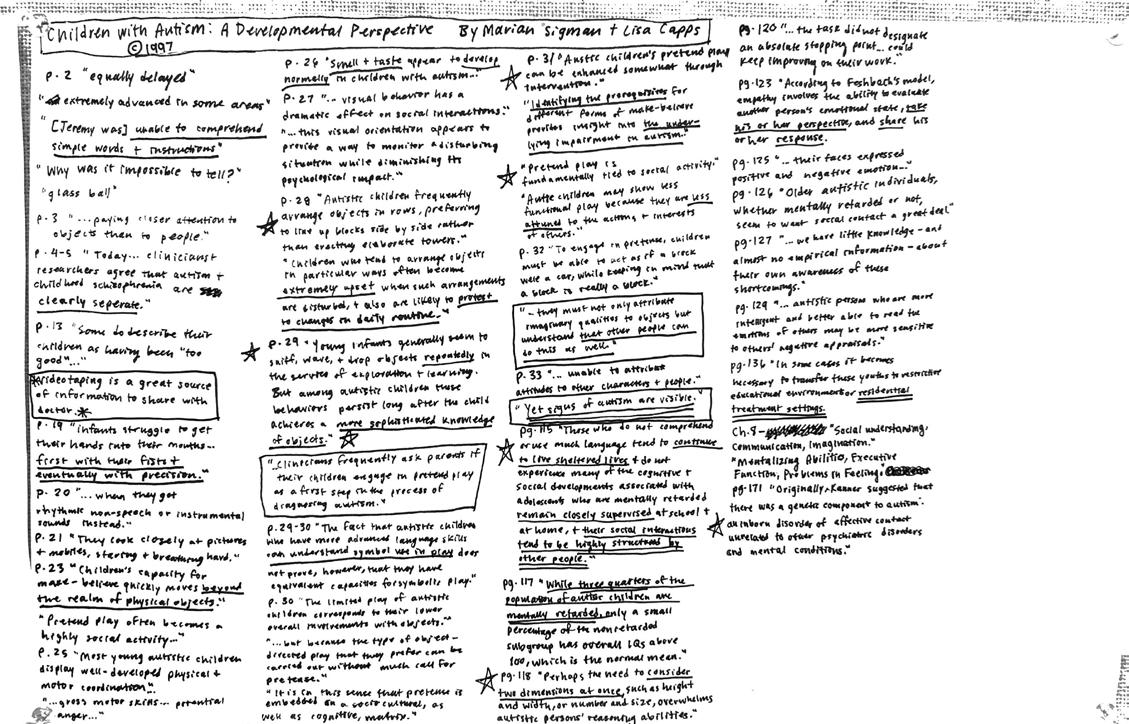 Children with Autism: A Developmental Perspective By Marian Sigman + Lisa Capps
©1997
p. 2 "equally delayed"
"extremely advanced in some areas"
"[Jeremy was] unable to comprehend
simple words + instructions"
"Why was it impossible to tell?"
"glass ball"
p. 3 "...paying closer attention to
objects than to people."
p. 4-5 "Today... clinicians +
researchers agree that autism +
childhood schizophrenia are
clearly seperate."
p. 13 "Some do describe their
children as having been "too
good"..."
*Videotaping is a great source
of information to share with
doctor.*
p. 19 "infants struggle to get
their hands into their mouths...
first with their fists +
eventually with precision."
p. 20 "...when they got
rhythmic non-speech or instrumental
sounds instead."
p. 21 "They look closely at pictures
+ mobiles, staring + breathing hard."
p. 23 "Children's capacity for
make-believe quickly moves beyond
the realm of physical objects."
"Pretend play often becomes a
highly social activity..."
p. 25 "Most young autistic children
display well-developed physical +
motor coordination."
"...gross motor skills... potential
anger..."
p. 26 "Smell + taste appear to develop
normally in children with autism..."
p. 27 "...visual behavior has a
dramatic effect on social interactions."
"...this visual orientation appears to
provide a way to monitor a disturbing
situation while diminishing its
psychological impact."
p. 28 "Autistic children frequently
arrange objects in rows, preferring
to line up blocks side by side rather
than erecting elaborate towers."
"Children who tend to arrange objects
in particular ways often become
extremely upset when such arrangements
are disturbed, + also are likely to protest
to changes in daily routine."
p. 29 "Young infants generally seem to
sniff, wave, + drop objects repeatedly in
the service of exploration + learning.
But among autistic children these
behaviors persist long after the child
achieves a more sophisticated knowledge
of objects."
"Clinicians frequently ask parents if
their children engage in pretend play
as a first step in the process of
diagnosing autism."
p. 29-30 "The fact that autistic children
who have more advanced language skills
can understand symbol use in play does
not prove, however, that they have
equivalent capacities for symbolic play."
p. 30 "The limited play of autistic
children corresponds to their lower
overall involvements with objects."
"...but because the type of object-
directed play that they prefer can be
carried out without much call for
pretense."
"It is in this sense that pretense is
embedded in a socio-cultural, as
well as cognitive, matrix."
p. 31 "Autistic children's pretend play
can be enhanced somewhat through
intervention."
"Identifying the prerequisites for
different forms of make-believe
provides insight into the under-
lying impairment in autism."
"Pretend play is
fundamentally tied to social activity."
"Autistic children may show less
functional play because they are less
attuned to the actions + interests
of others."
p. 32 "To engage in pretense, children
must be able to act as if a block
were a car, while keeping in mind that
a block is really a block."
"...they must not only attribute
imaginary qualities to objects but
understand that other people can
do this as well."
p. 33 "...unable to attribute
attitudes to other characters + people."
"Yet signs of autism are visible."
pg. 115 "Those who do not comprehend
or use much language tend to continue
to live sheltered lives + do not
experience many of the cognitive +
social developments associated with
adolescents who are mentally retarded
remain closely supervised at school +
at home, + their social interactions
tend to be highly structured by
other people."
pg. 117 "While three quarters of the
population of autistic children are
mentally retarded, only a small
percentage of the nonretarded
subgroup has overall IQs above
100, which is the normal mean."
pg. 118 "Perhaps the need to consider
two dimensions at once, such as height
and width, or number and size, overwhelms
autistic persons' reasoning abilities."
pg. 120 "...the task did not designate
an absolute stopping point... could
keep improving on their work."
pg. 123 "According to Feshbach's model,
empathy involves the ability to evaluate
another person's emotional state, take
his or her perspective, and share his
or her response.
pg. 125 "...their faces expressed
positive and negative emotion..."
pg. 126 "Older autistic individuals,
whether mentally retarded or not,
seem to want social contact a great deal."
pg. 127 "...we have little knowledge - and
almost no empirical information - about
their own awareness of these
shortcomings."
pg. 129 "...autistic persons who are more
intelligent and better able to read the
emotions of others may be more sensitive
to others' negative appraisals."
pg. 136 "In some cases it becomes
necessary to transfer these youths to restrictive
educational environments or residential
treatment settings.
Ch. 8 - "Social understanding,
Communication, Imagination."
"Mentalizing Abilities, Executive
Function, Problems in Feeling.
pg. 171 "Originally, Kanner suggested that
there was a genetic component to autism:
an inborn disorder of affective contact
unrelated to other psychiatric disorders
and mental conditions."